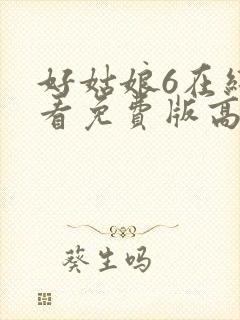 好姑娘6在线
看免费版高
葵生吗